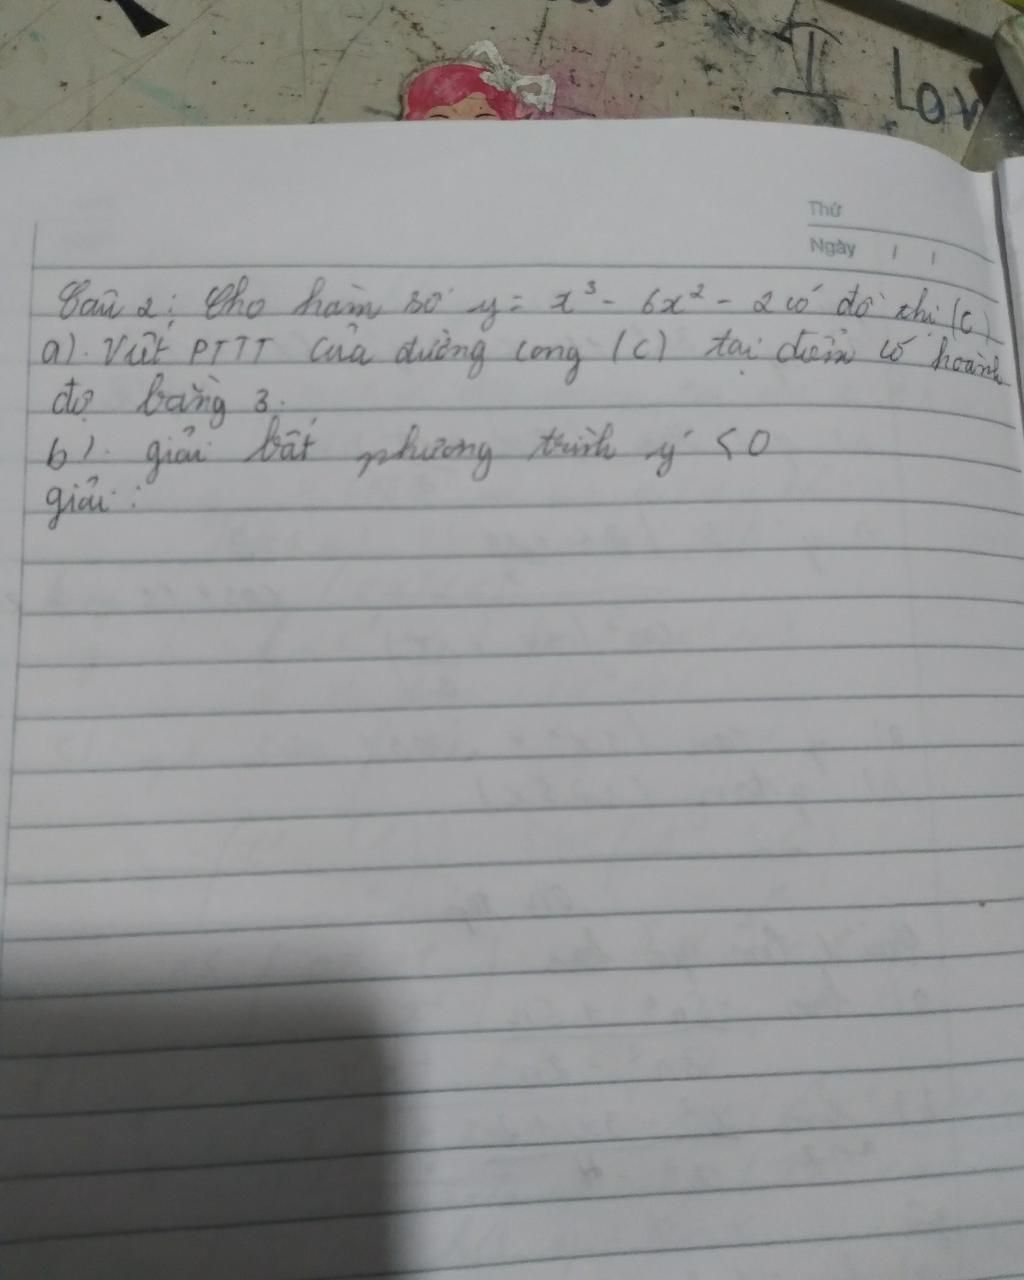 II Lov
Thứ
Ngày / /
Câu 2: Cho hàm số y = x³ - 6x² - 2 có đồ thị (C)
a). Viết PTTT của đường cong (C) tại điểm có hoành
độ bằng 3.
b). giải bất phương trình y' < 0
giải: